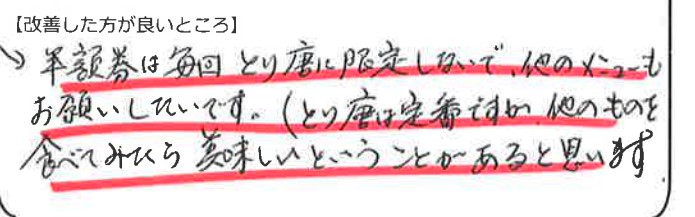 【改善した方が良いところ】
半額券は毎回とり唐に限定しないで、他のメニューも
お願いしたいです。(とり唐は定番ですが、他のものを
食べてみたら美味しいということがあると思います